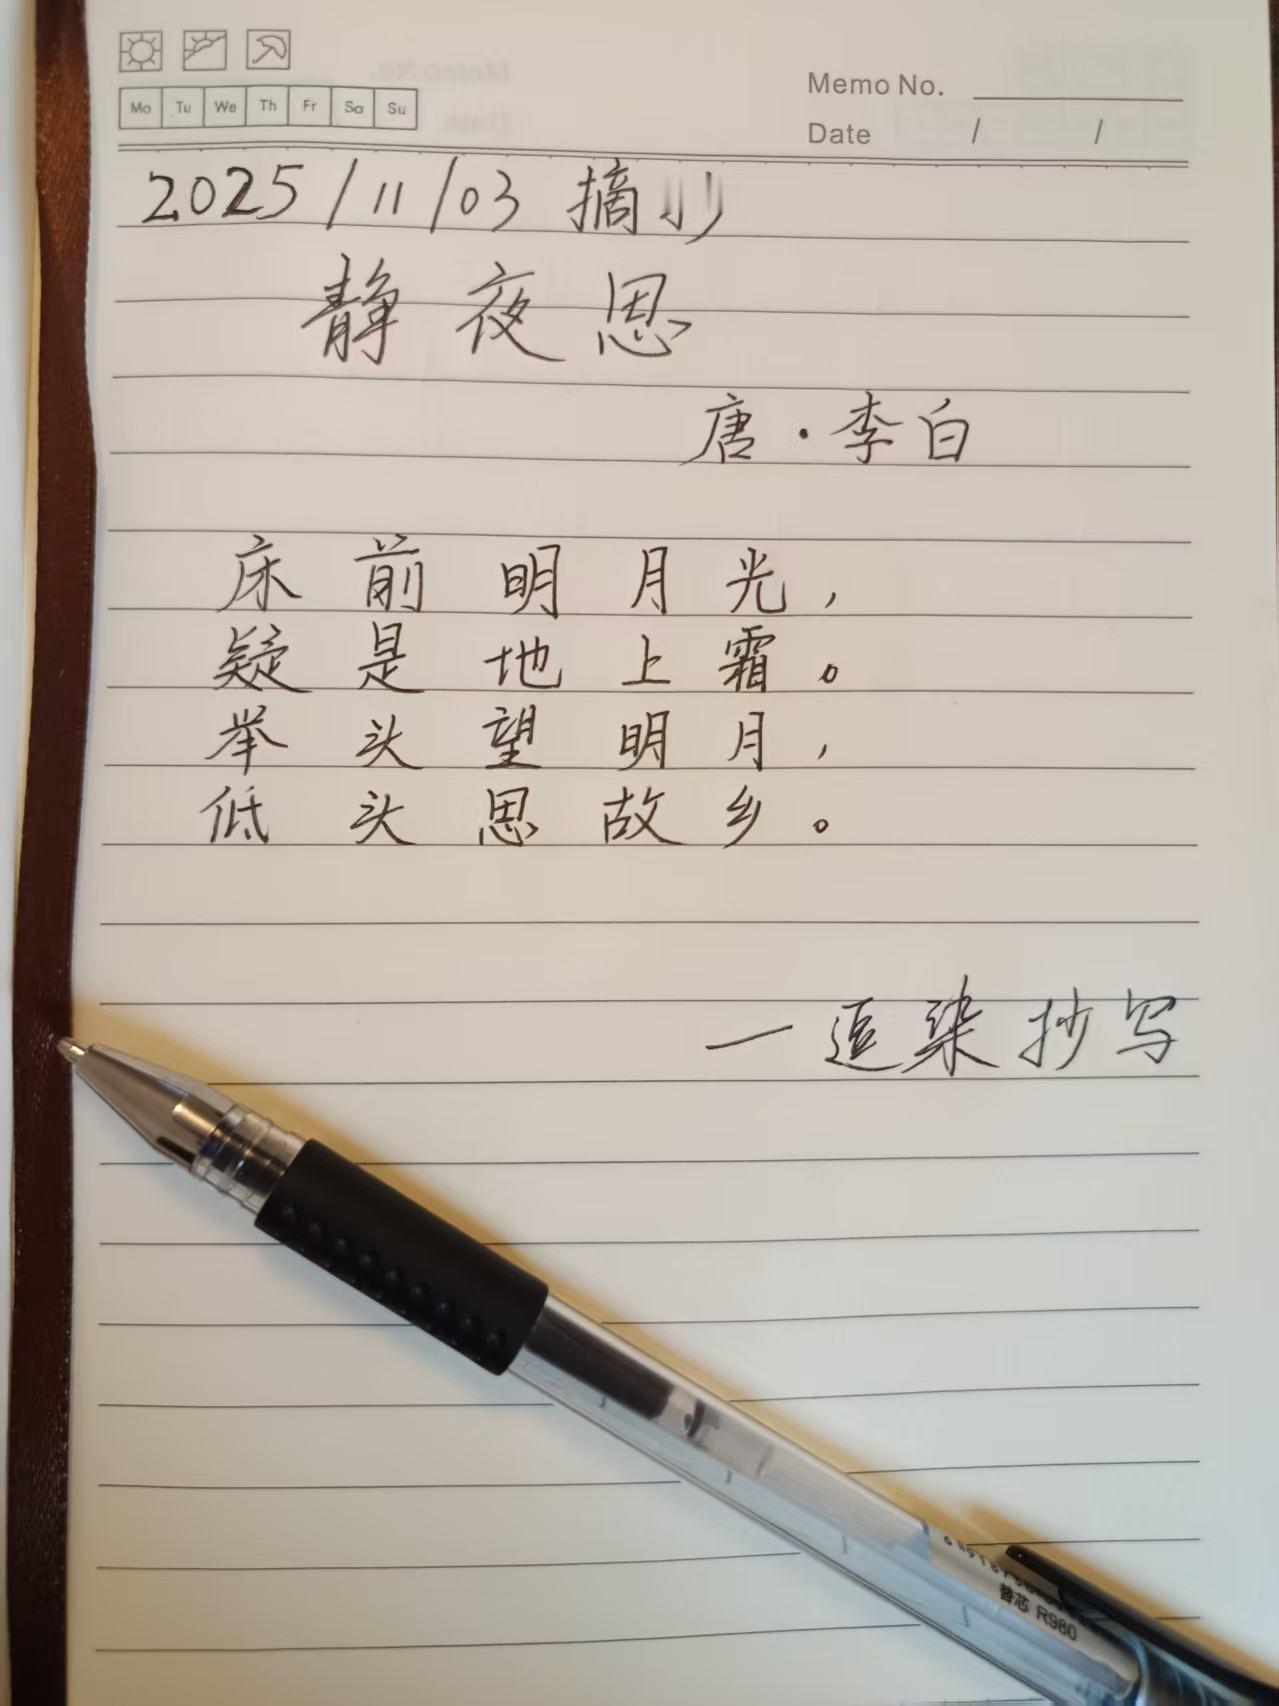 Mo Tu We Th Fr Sa Su
Memo No.
Date / /
2025/11/03 摘抄
静夜思
唐·李白
床前明月光，
疑是地上霜。
举头望明月，
低头思故乡。
一追染抄写
替芯 R980